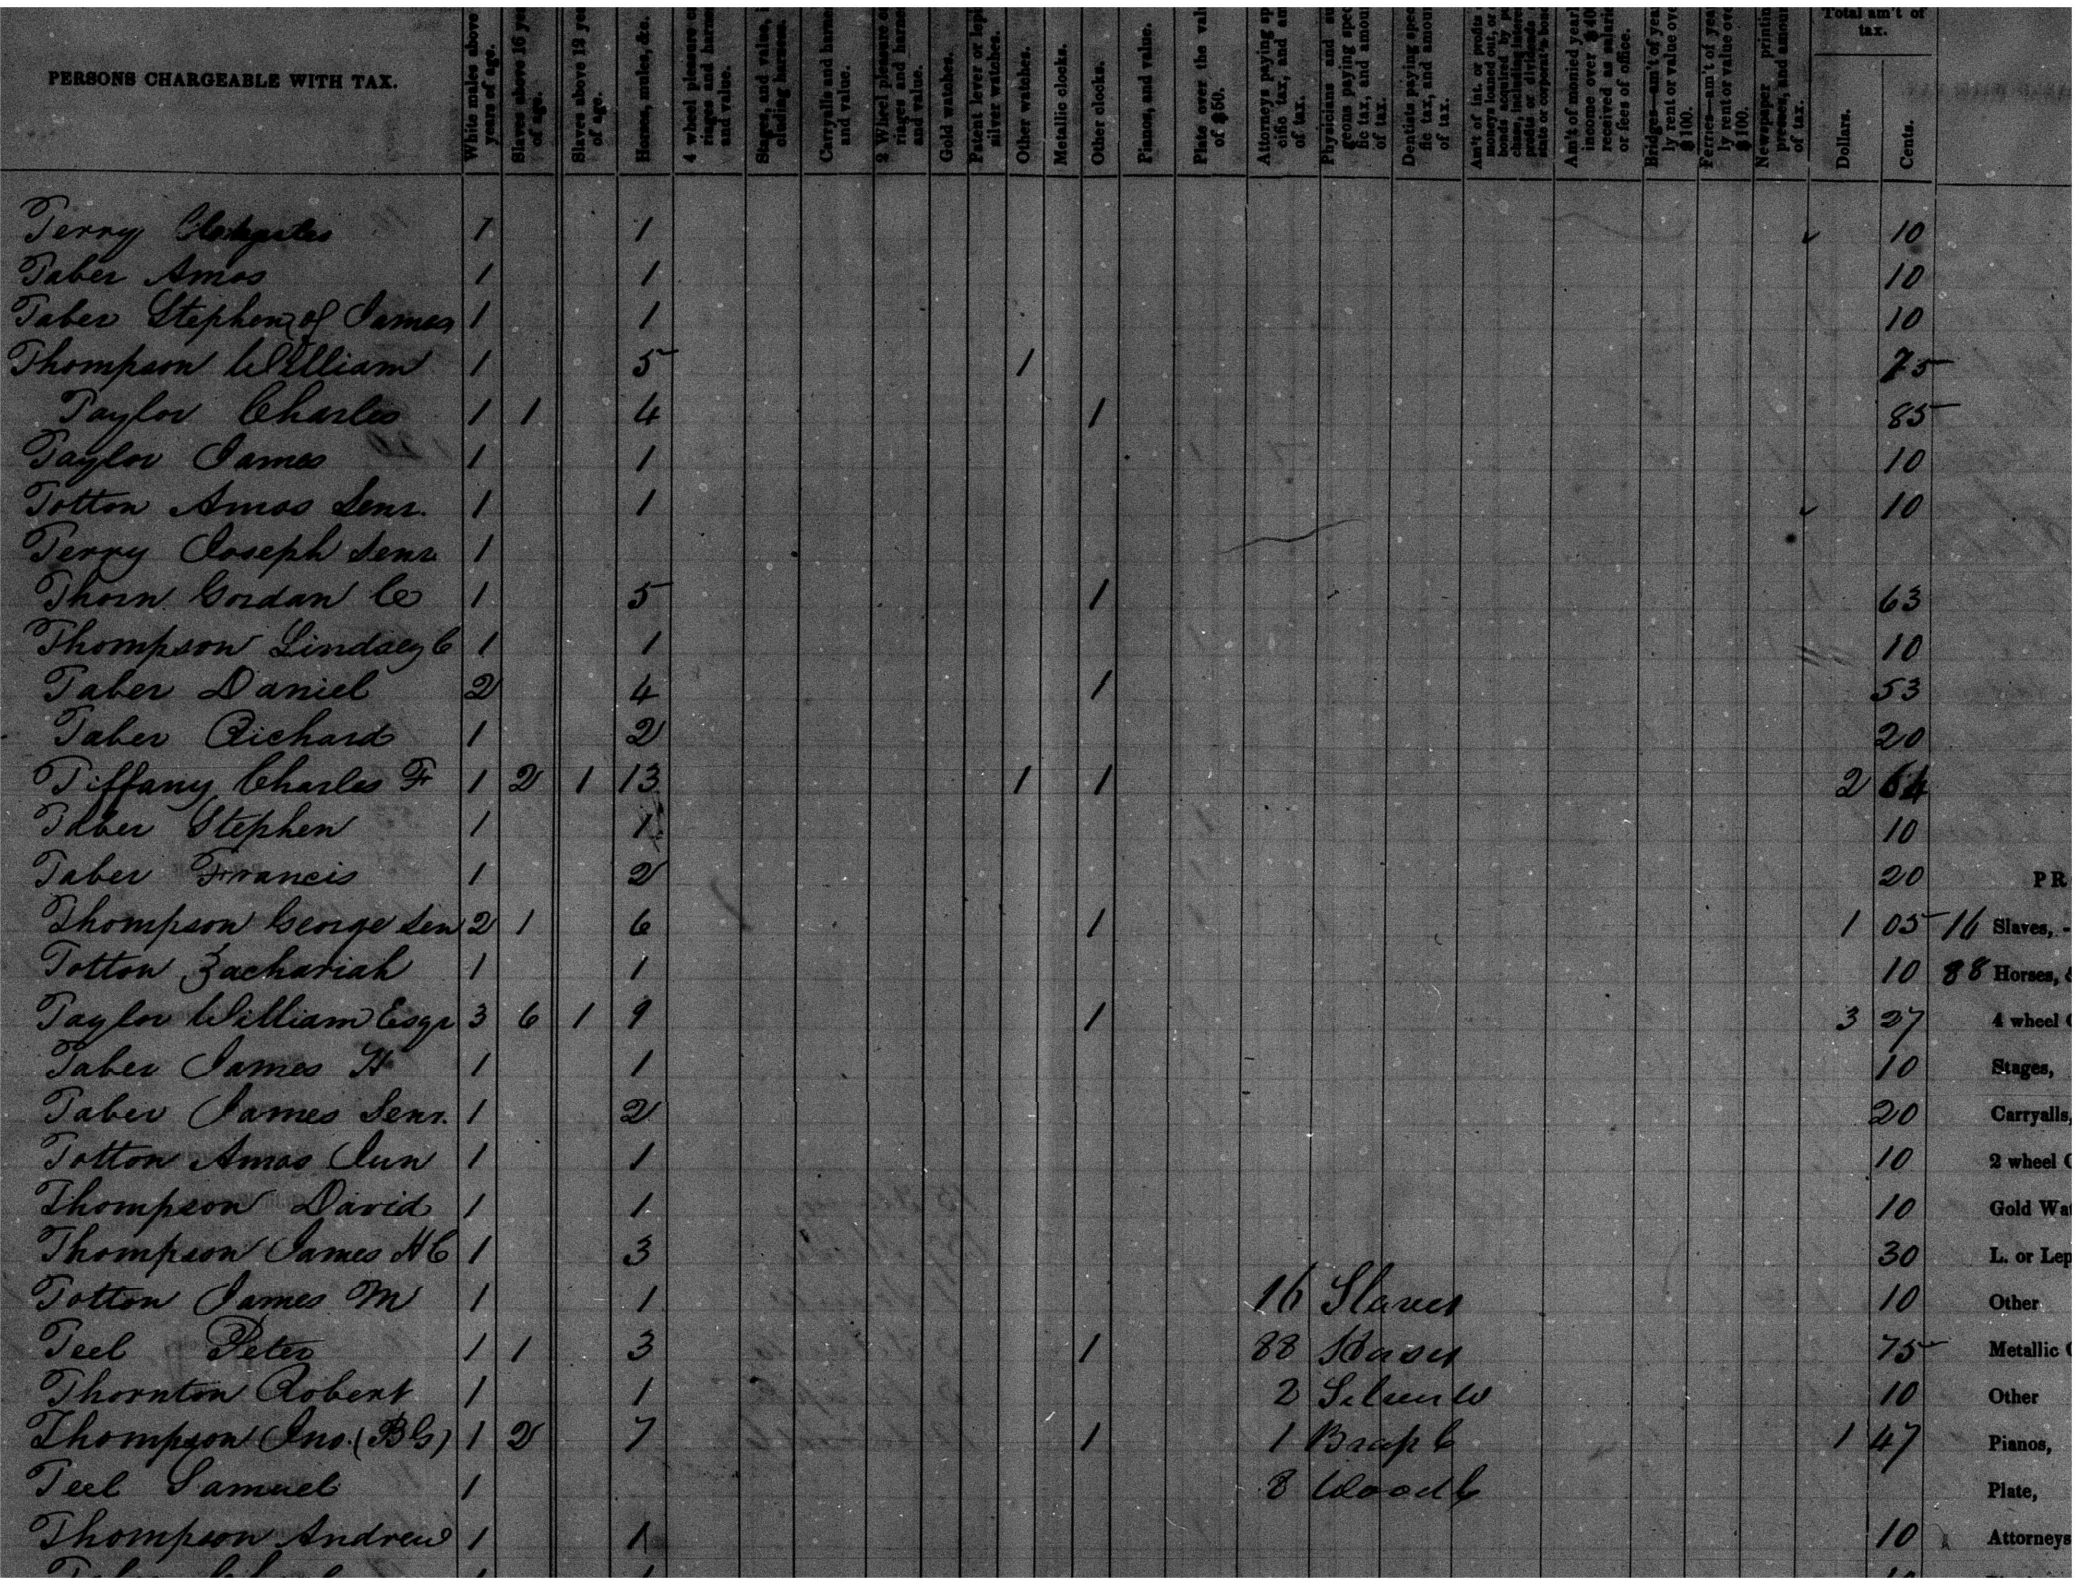 PERSONS CHARGEABLE WITH TAX.
White males above
years of age.
Slaves above 16 ye
of age.
Slaves above 12 ye
of age.
Horses, mules, &c.
4 wheel pleasure
riages and harne
and value.
Stages, and value, i
cluding harness.
Carryalls and harne
and value.
2 Wheel pleasure
riages and harne
and value.
Gold watches.
Patent lever or lepi
silver watches.
Other watches.
Metallic clocks.
Other clocks.
Pianos, and value.
Plate over the val
of $50.
Attorneys paying sp
cific tax, and am
of tax.
Physicians and su
geons paying spec
fic tax, and amoun
of tax.
Dentists paying spec
fic tax, and amoun
of tax.
Am't of int. or profits
moneys loaned out, or
bonds acquired by
chase, including interes
profits or dividends
state or corporat'n bond
Am't of monied yearl
income over $400
received as salarie
or fees of office.
Bridges—am't of yea
ly rent or value ove
$100.
Ferries—am't of yea
ly rent or value ove
$100.
Newspaper printin
presses, and amoun
of tax.
Total am't of
tax.
Dollars.
Cents.
Terry 1 1 10
Taber Amos 1 1 10
Taber Stephen of James 1 1 10
Thompson William 1 5 1 75
Taylor Charles 1 1 4 1 85
Taylor James 1 1 10
Totton Amos Senr. 1 1 10
Terry Joseph Senr 1
Thorn Gordan C 1 5 1 63
Thompson Lindsey C 1 1 10
Taber Daniel 2 4 1 53
Taber Richard 1 2 20
Tiffany Charles F 1 2 1 13 1 1 2 64
Taber Stephen 1 1 10
Taber Francis 1 2 20 PR
Thompson George Sen 2 1 6 1 1 05 16 Slaves, -
Totton Zachariah 1 1 10 88 Horses, &
Taylor William Esqr 3 6 1 9 1 3 27 4 wheel C
Taber James H 1 1 10 Stages,
Taber James Senr. 1 2 20 Carryalls,
Totton Amos Jun 1 1 10 2 wheel C
Thompson David 1 1 10 Gold Wat
Thompson James H C 1 3 30 L. or Lep
Totton James M 1 1 16 Slaves 10 Other
Teel Peter 1 1 3 1 88 Horses 75 Metallic C
Thornton Robert 1 1 2 Silver W 10 Other
Thompson Jno. (BG) 1 2 7 1 1 Brass C 1 47 Pianos,
Teel Samuel 1 8 Wood C Plate,
Thompson Andrew 1 1 10 Attorneys